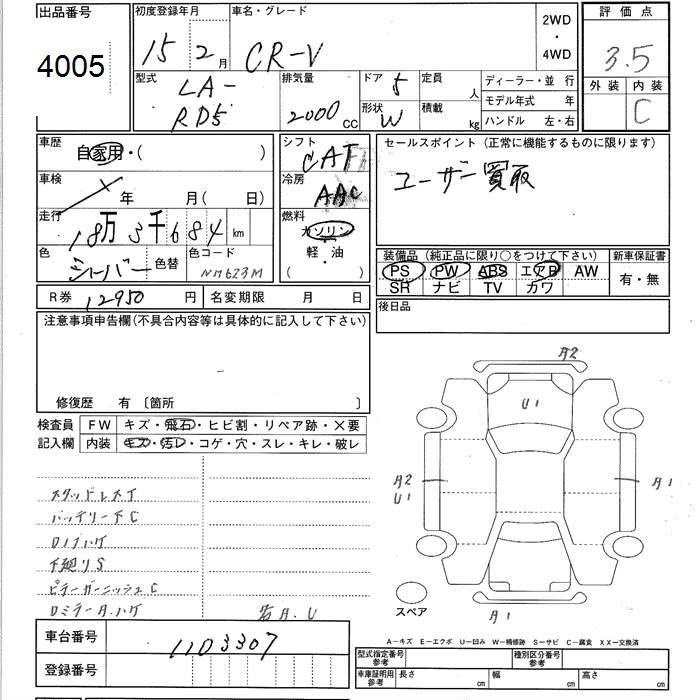 出品番号
4005
初度登録年月
15 2 月
車名・グレード
CR-V
2WD
・
4WD
評価点
3.5
外装 内装
C
型式
LA-
RD5
排気量
2000 CC
ドア 5
形状 W
定員 人
積載 kg
ディーラー・並 行
モデル年式 年
ハンドル 左・右
車歴
自家用・( )
車検
年 月( 日)
走行
18万3千684 km
色
シルバー
色替
色コード
NH623M
シフト
CAT
冷房
AAC
燃料
ガソリン
軽・油
( )
セールスポイント (正常に機能するものに限ります)
ユーザー買取
装備品 (純正品に限り○をつけて下さい)
PS PW ABS エアB AW
SR ナビ TV カワ
新車保証書
有・無
R券 12950 円
名変期限 月 日
後日品
注意事項申告欄(不具合内容等は具体的に記入して下さい)
修復歴 有 〔箇所 〕
検査員
記入欄
FW キズ・飛石・ヒビ割・リペア跡・×要
内装 キズ・汚レ・コゲ・穴・スレ・キレ・破レ
スタッドレスT
バッテリー下C
下廻りS
A2
U1
A2
U1
A1
A1
スペア
A-キズ E-エクボ U-凹み W-補修跡 S-サビ C-腐食 XX-交換済
車台番号
1103307
登録番号
型式指定番号
参考
種別区分番号
参考
車庫証明用
参考
長さ cm 幅 cm 高さ cm